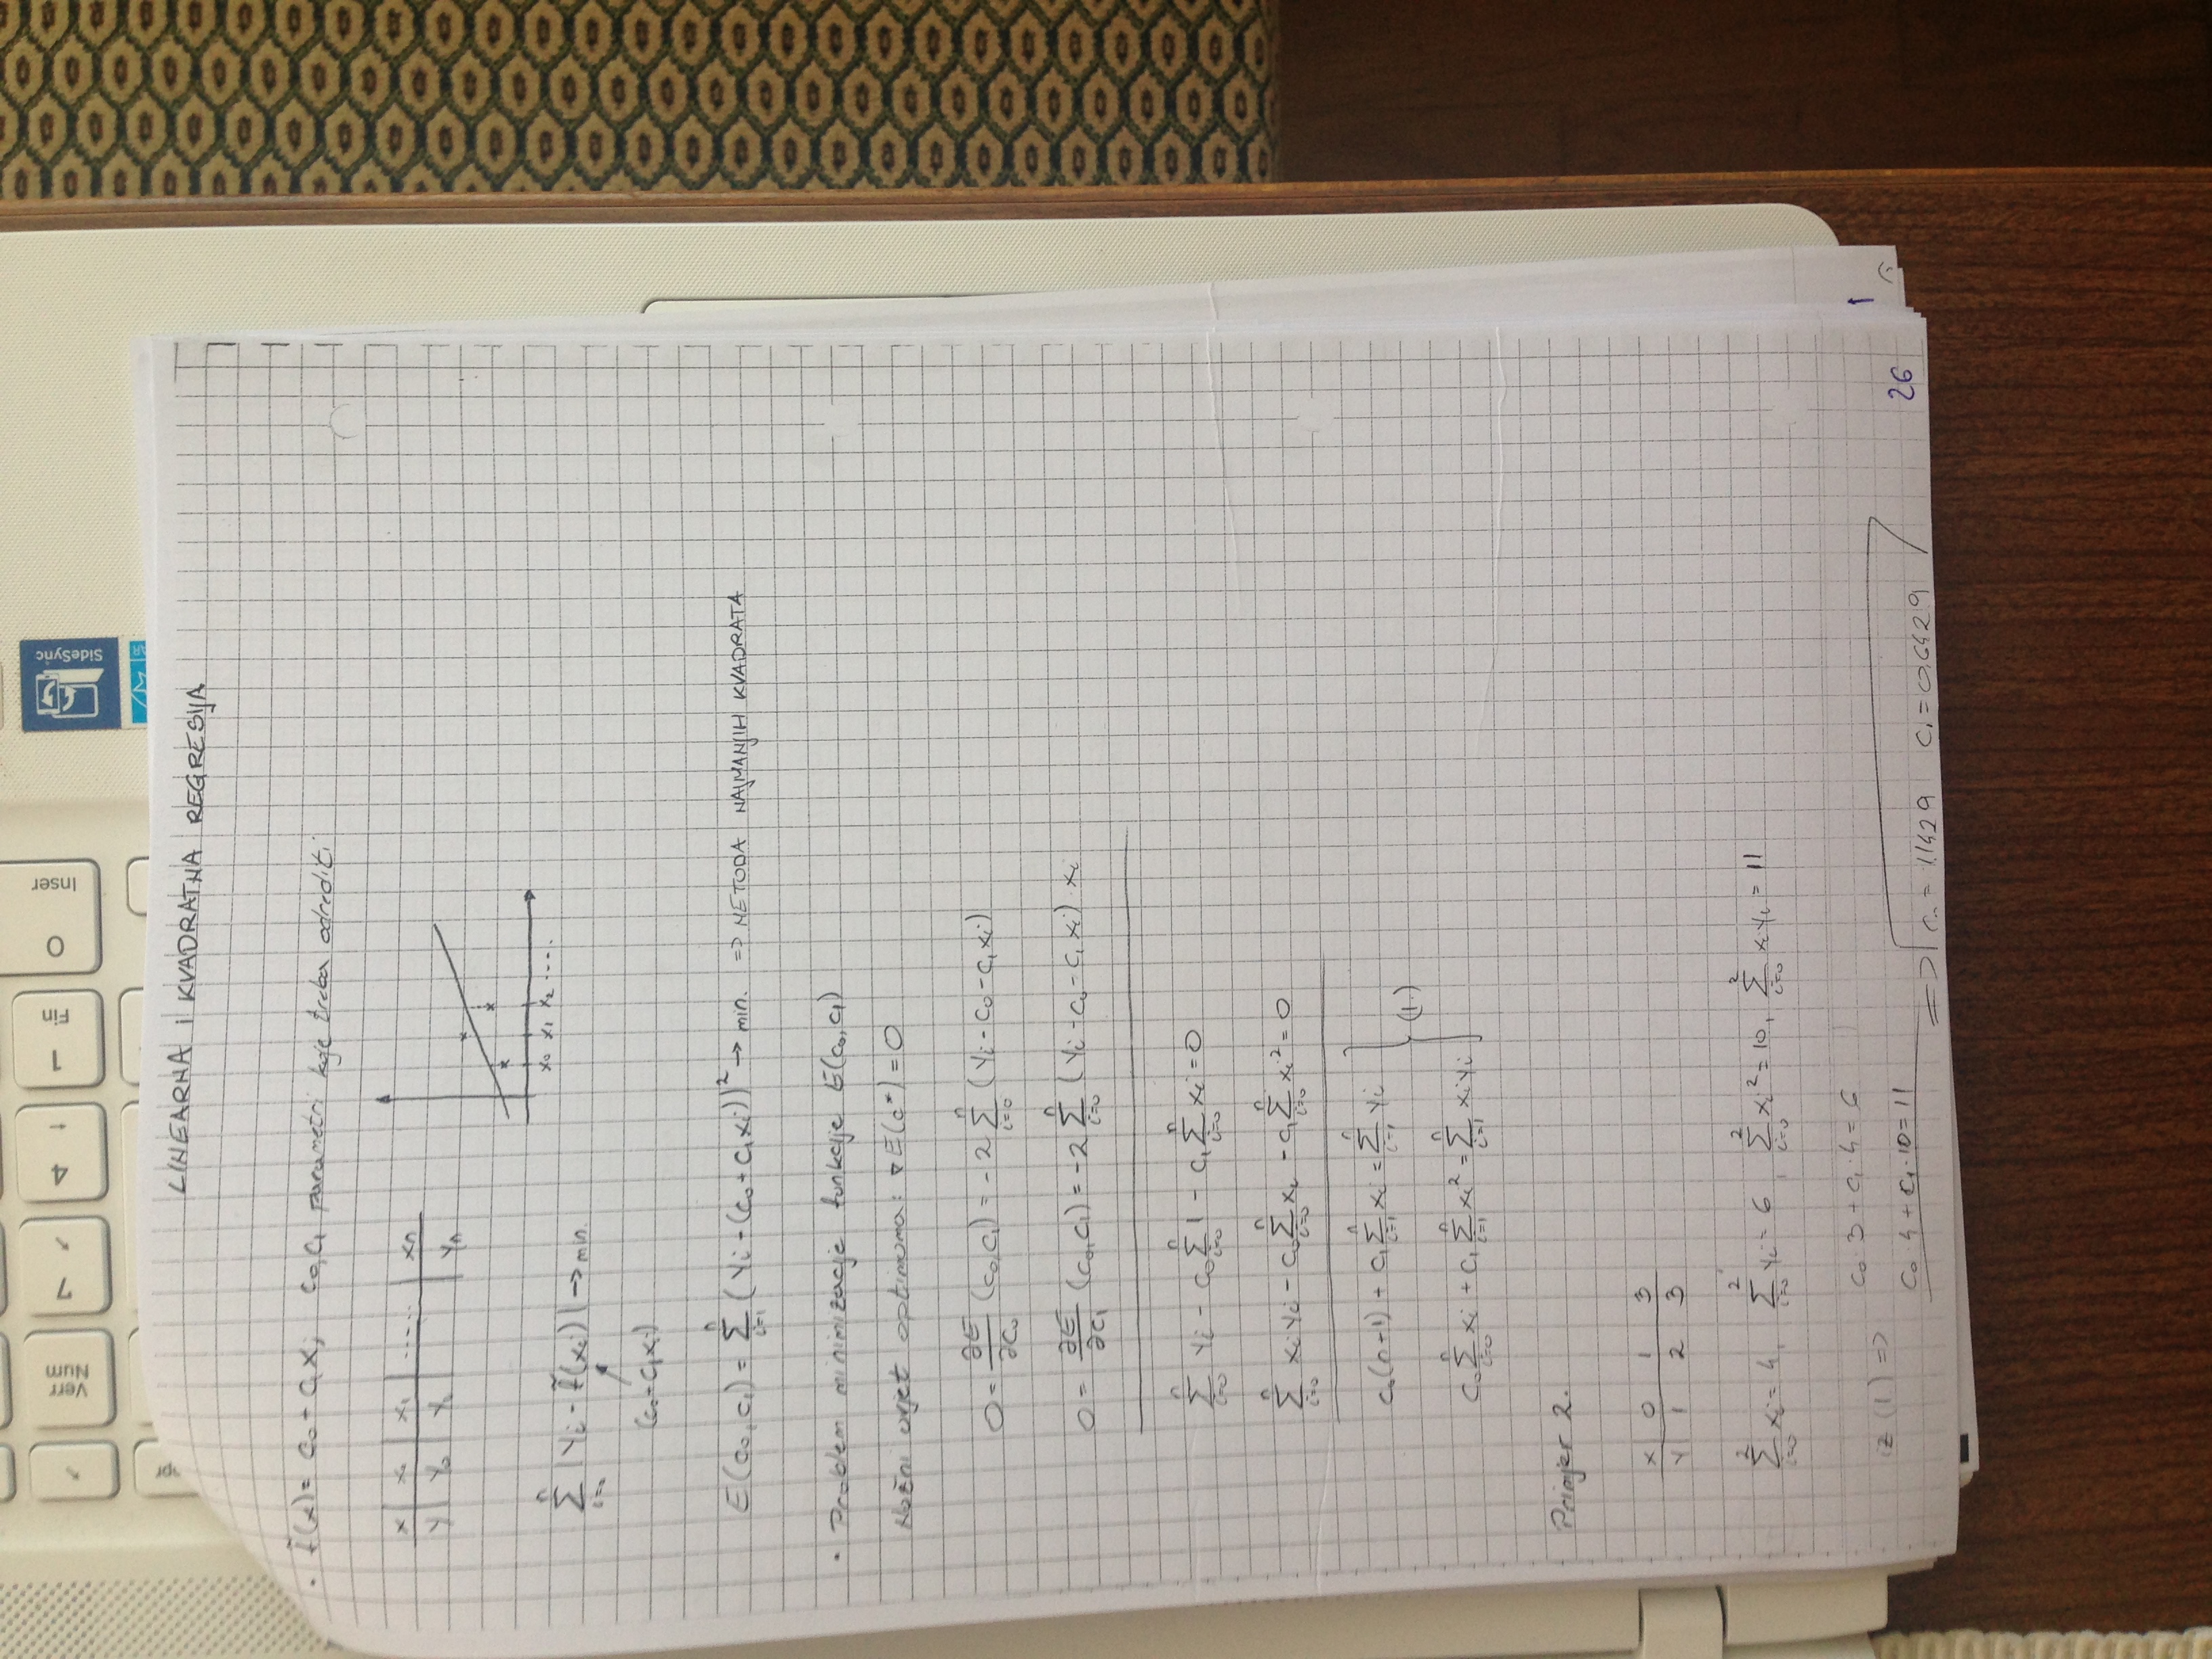 Verr Num
7
4
1 Fin
0 Inser
SideSync
LINEARNA I KVADRATNA REGRESIJA
• f̃(x) = c₀ + c₁x; c₀, c₁ parametri koje treba odrediti
x | x₀ | x₁ | ...... | xn
y | y₀ | y₁ | | yn
x₀ x₁ x₂ ....
∑_{i=0}^{n} |yi - f̃(xi)| → min.
(c₀ + c₁xi)
E(c₀, c₁) = ∑_{i=1}^{n} (yi - (c₀ + c₁xi))² → min. => METODA NAJMANJIH KVADRATA
• Problem minimizacije funkcije E(c₀, c₁)
Nužni uvjet optimuma: ∇E(c*) = 0
0 = ∂E/∂c₀ (c₀, c₁) = -2 ∑_{i=0}^{n} (yi - c₀ - c₁xi)
0 = ∂E/∂c₁ (c₀, c₁) = -2 ∑_{i=0}^{n} (yi - c₀ - c₁xi) · xi
∑_{i=0}^{n} yi - c₀ ∑_{i=0}^{n} 1 - c₁ ∑_{i=0}^{n} xi = 0
∑_{i=0}^{n} xi yi - c₀ ∑_{i=0}^{n} xi - c₁ ∑_{i=0}^{n} xi² = 0
c₀(n+1) + c₁ ∑_{i=1}^{n} xi = ∑_{i=1}^{n} yi
(1.)
c₀ ∑_{i=0}^{n} xi + c₁ ∑_{i=1}^{n} xi² = ∑_{i=1}^{n} xi yi
Primjer 2.
x | 0 1 3
y | 1 2 3
∑_{i=0}^{2} xi = 4, ∑_{i=0}^{2} yi = 6, ∑_{i=0}^{2} xi² = 10, ∑_{i=0}^{2} xi yi = 11
c₀·3 + c₁·4 = 6
iz (1.) =>
c₀·4 + c₁·10 = 11
=> c₀ = 1.1429 c₁ = 0.6429
26